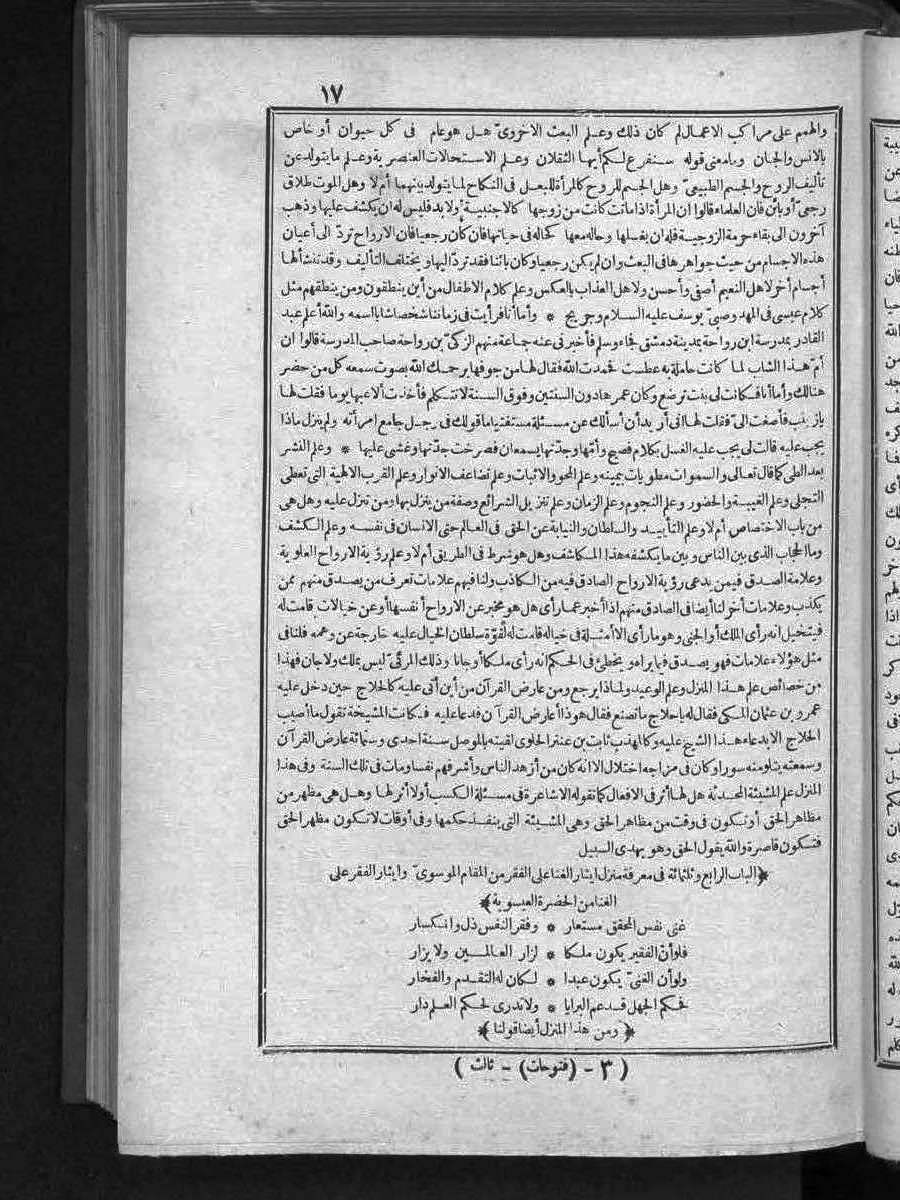 ١٧
والهمم على مراكب الاعمال لم كان ذلك وعلم البعث الاخروىّ هل هو عام فى كل حيوان أو خاص
بالانس والجان وما معنى قوله سنفرغ لكم أيها الثقلان وعلم الاستحالات العنصرية وعلم ما يتولد عن
تأليف الروح والجسم الطبيعىّ وهل الجسم للروح كالمرأة للبعل فى النكاح لما يتولد بينهما أم لا وهل الموت طلاق
رجعىّ أو بائن فان العلماء قالوا ان المرأة اذا ماتت كانت من زوجها كالاجنبية ولا بد فليس له ان يكشف عليها وذهب
آخرون الى بقاء حرمة الزوجية فله ان يغسلها وحاله معها كحاله فى حياتها فان كان رجعيا فان الارواح تردّ الى أعيان
هذه الاجسام من حيث جواهرها فى البعث وان لم يكن رجعيا وكان بائنا فقد تردّ اليها ويختلف التأليف وقد تنشأ لها
أجسام أخر لاهل النعيم أصفى وأحسن ولاهل العذاب بالعكس وعلم كلام الاطفال من أين ينطقون ومن ينطقهم مثل
كلام عيسى فى المهد وصبىّ يوسف عليه السلام وجريج * وأما أنا فرأيت فى زماننا شخصا شابا اسمه والله أعلم عبد
القادر بمدرسة ابن رواحة بمدينة دمشق فجاء وسلم فأخبرنى عنه جماعة منهم الزكىّ بن رواحة صاحب المدرسة قالوا ان
أم هذا الشاب لما كانت حاملة به عطست فحمدت الله فقال لها من جوفها يرحمك الله بصوت سمعه كل من حضر
هنالك وأما أنا فكانت لى بنت ترضع وكان عمرها دون السنتين وفوق السنة لا تتكلم فأخذت ألاعبها يوما فقلت لها
يا زينب فأصغت الىّ فقلت لها انى أريد أن أسألك عن مسئلة مستفتيا ما قولك فى رجل جامع امرأته ولم ينزل ماذا
يجب عليه قالت لى يجب عليه الغسل بكلام فصيح وأمّها وجدّتها يسمعان فصرخت جدّتها وغشى عليها * وعلم النشر
بعد الطى كما قال تعالى والسموات مطويات بيمينه وعلم المحو والاثبات وعلم تضاعف الانوار وعلم القرب الالهية التى تعطى
التجلى وعلم الغيبة والحضور وعلم النجوم وعلم الزمان وعلم تنزيل الشرائع وصفة من ينزل بها ومن تنزل عليه وهل هى
من باب الاختصاص أم لا وعلم التأييد والسلطان والنيابة عن الحق فى العالم حتى الانسان فى نفسه وعلم الكشف
وما الحجاب الذى بين الناس وبين ما يكشفه هذا المكاشف وهل هو شرط فى الطريق أم لا وعلم رؤية الارواح العلوية
وعلامة الصدق فيمن يدعى رؤية الارواح الصادق فيه من الكاذب ولنا فيهم علامات تعرف من يصدق منهم ممن
يكذب وعلامات أخر لنا أيضا فى الصادق منهم اذا أخبر عما رأى هل هو مخبر عن الارواح أنفسها أو عن خيالات قامت له
فيتخيل انه رأى الملك أو الجنى وهو ما رأى الا أمثلة فى خياله قامت له لقوّة سلطان الخيال عليه خارجة عن وهمه فلنا فى
مثل هؤلاء علامات فهو يصدق فيما يراه ويخطئ فى الحكم انه رأى ملكا أو جانا وذلك المرئىّ ليس بملك ولا جان فهذا
من خصائص علم هذا المنزل وعلم الوعيد ولماذا يرجع ومن عارض القرآن من أين أتى عليه كالحلاج حين دخل عليه
عمرو بن عثمان المكى فقال له يا حلاج ما تصنع فقال هوذا أعارض القرآن فدعا عليه فكانت المشيخة تقول ما أصيب
الحلاج الا بدعاء هذا الشيخ عليه وكالمهذب ثابت بن عنتر الحلوى لقيته بالموصل سنة احدى وستمائة عارض القرآن
وسمعته يتلو منه سورا وكان فى مزاجه اختلال الا انه كان من أزهد الناس وأشرفهم نفسا ومات فى تلك السنة وفى هذا
المنزل علم المشيئة المحدثة هل لها أثر فى الافعال كما تقوله الاشاعرة فى مسئلة الكسب أولا أثر لها وهل هى مظهر من
مظاهر الحق أو تكون فى وقت من مظاهر الحق وهى المشيئة التى ينفذ حكمها وفى أوقات لا تكون مظهر الحق
فتكون قاصرة والله يقول الحق وهو يهدى السبيل
﴿الباب الرابع وثلثمائة فى معرفة منزل ايثار الغنا على الفقر من المقام الموسوىّ وايثار الفقر على
الغنا من الحضرة العيسوية﴾
غنى نفس المحقق مستعار * وفقر النفس ذل وانكسار
فلو أنّ الفقير يكون ملكا * لزار العالمين ولا يزار
ولو أن الغنىّ يكون عبدا * لكان له التقدم والفخار
فحكم الجهل قد عم البرايا * ولا ندرى لحكم العلم دار
﴿ومن هذا المنزل أيضا قولنا﴾
(٣ - (فتوحات) - ثالث)